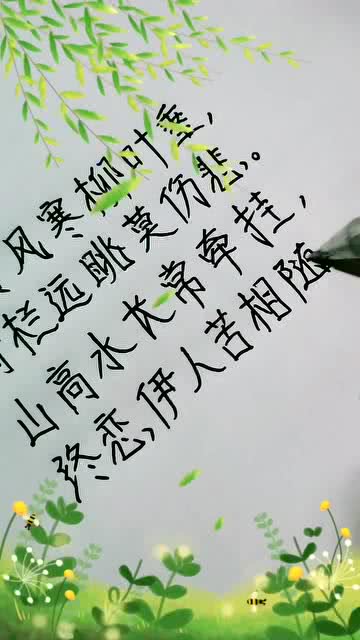 风寒柳叶垂,
栏远眺莫伤悲。
山高水长常牵挂,
终恋伊人苦相随